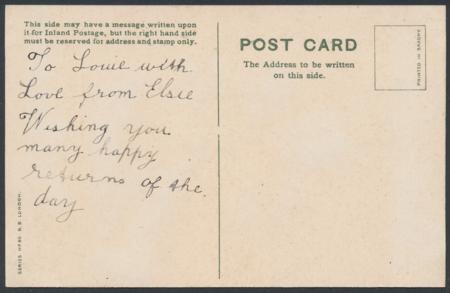 This side may have a message written upon
it for Inland Postage, but the right hand side
must be reserved for address and stamp only.
To Louie with
Love from Elsie
Wishing you
many happy
returns of the
day
POST CARD
The Address to be written
on this side.
PRINTED IN SAXONY